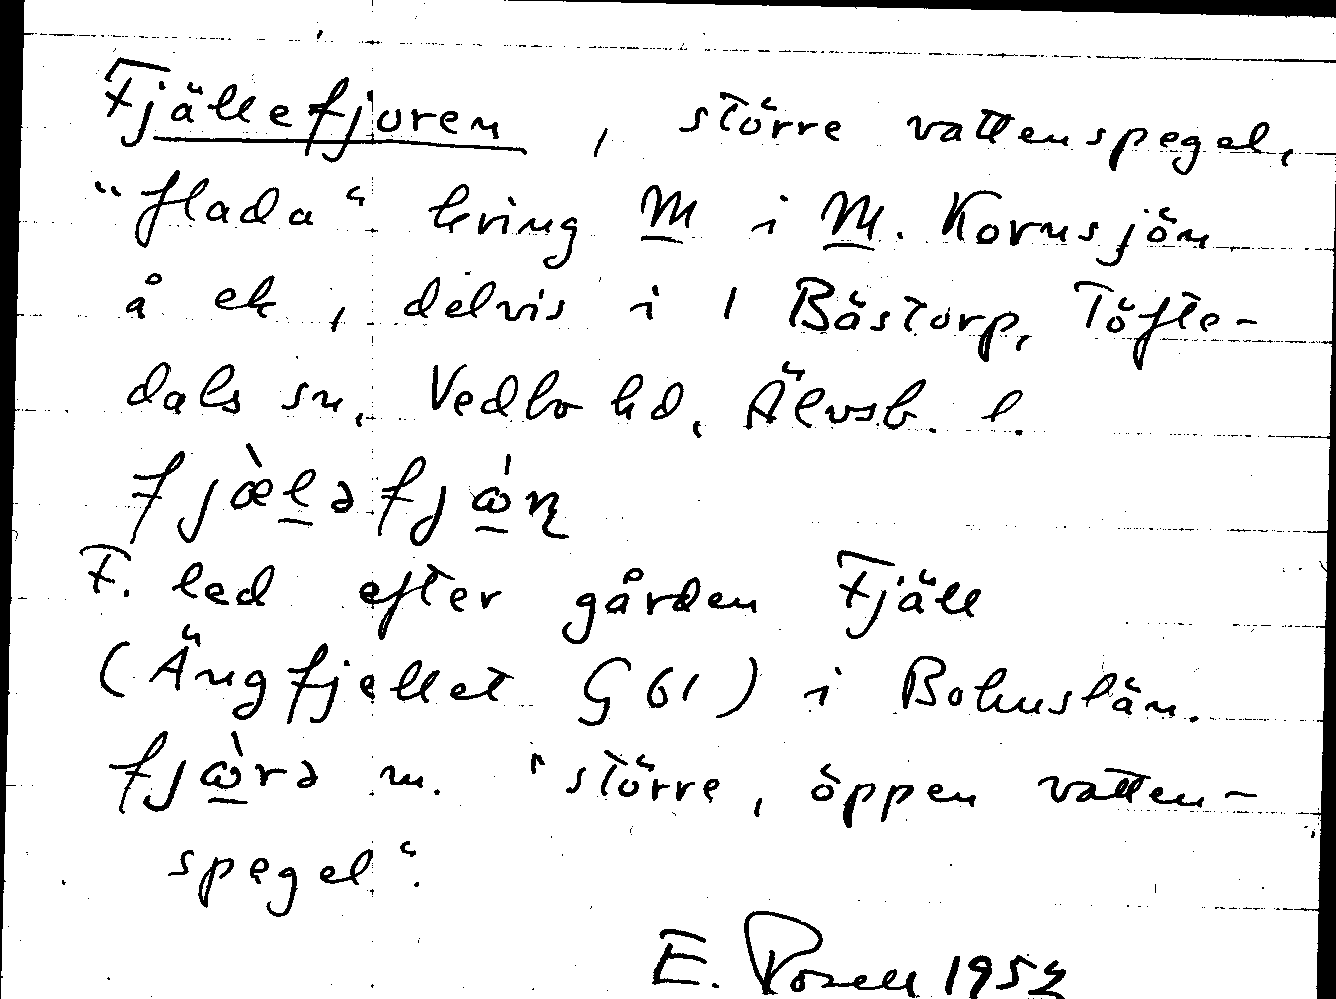 Fjällefjoren, större vattenspegel,
"flada" kring M i M. Kornsjön
å ek, delvis i 1 Båstorp, Töfte-
dals sn, Vedbo hd, Älvsb. l.
fjæ̀lǝfjω̇ɳ
F. led efter gården Fjäll
(Ängfjellet G 61) i Bohuslän.
fjὼrǝ m. "större, öppen vatten-
spegel".
E. 1952